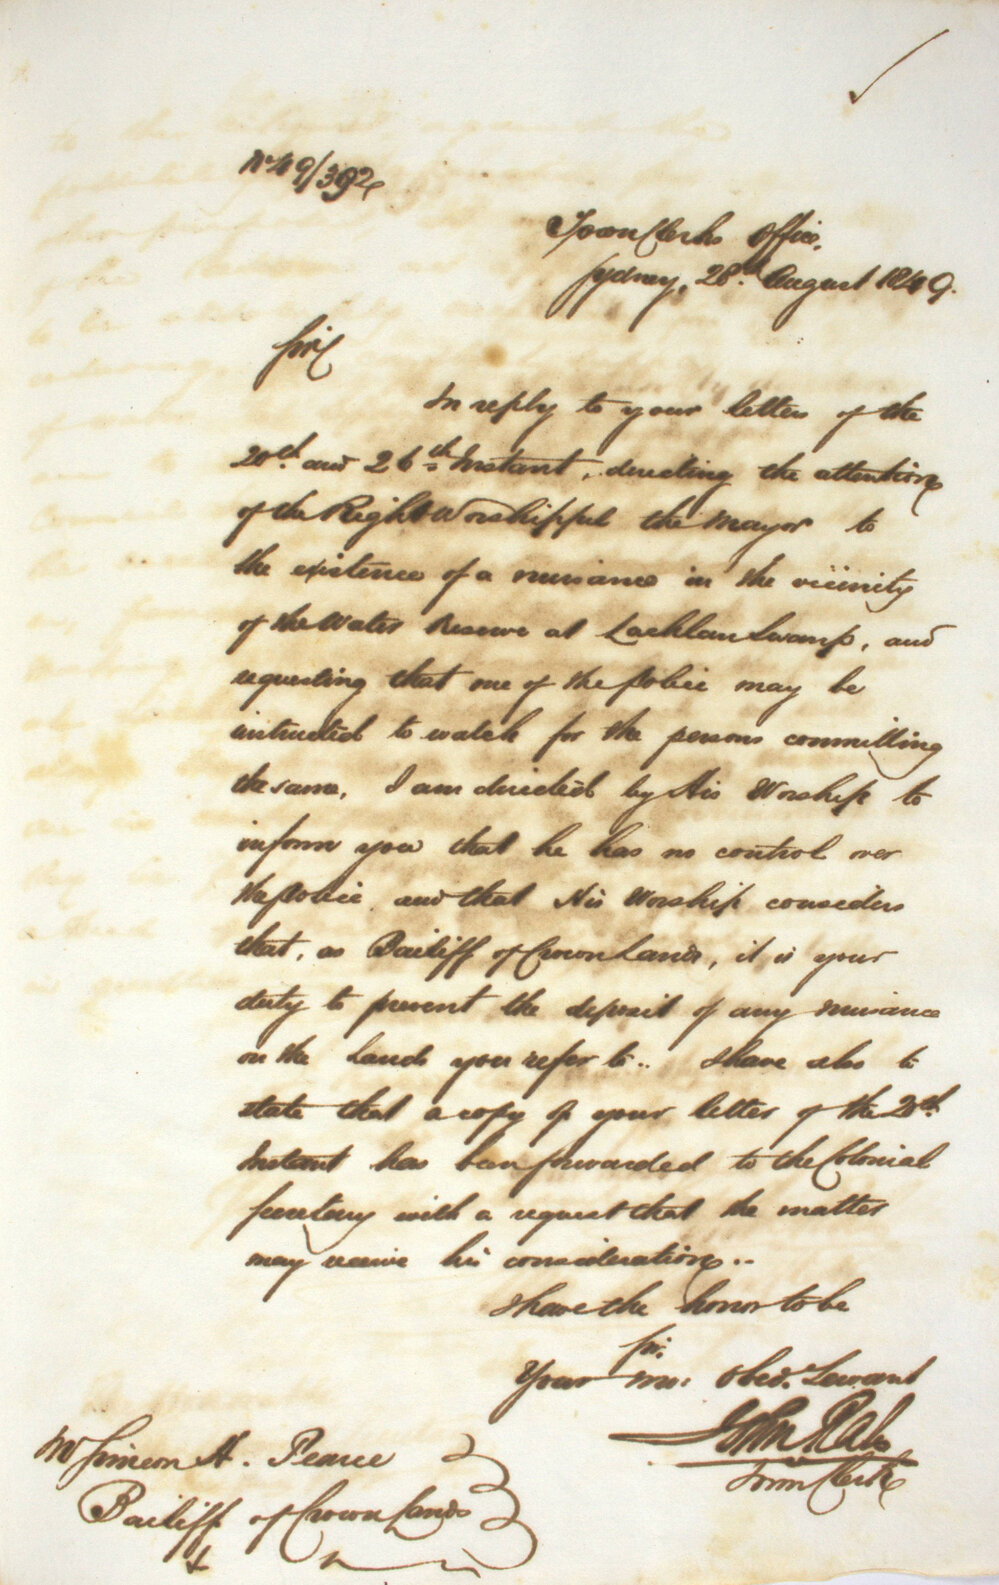 No 49/392
Town Clerks Office,
Sydney, 28th August 1849.
Sir
In reply to your letters of the
20th and 26th Instant, directing the attention
of the Right Worshipful the Mayor to
the existence of a nuisance in the vicinity
of the Water Reserve at Lachlan Swamp, and
requesting that one of the police may be
instructed to watch for the persons committing
the same, I am directed by His Worship to
inform you that he has no control over
the police and that His Worship considers
that, as Bailiff of Crown Lands, it is your
duty to prevent the deposit of any nuisance
on the Lands you refer to.. I have also to
state that a copy of your letter of the 20th
Instant has been forwarded to the Colonial
Secretary with a request that the matter
may receive his consideration..
I have the honor to be
Sir,
Your Mo: Obed. Servant
John Rae
Town Clerk
Mr Simeon H. Pearce
Bailiff of Crown Lands